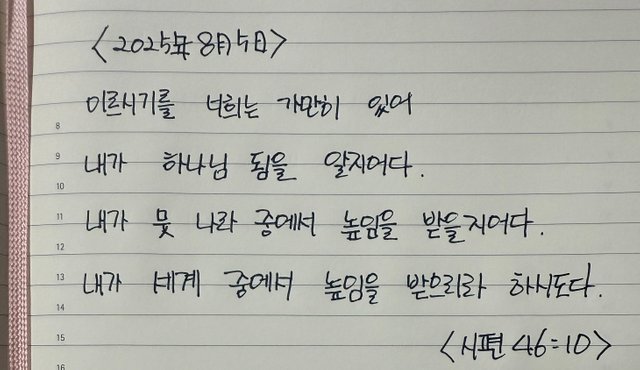 <2025年 8月 5日>
이르시기를 너희는 가만히 있어
8
내가 하나님 됨을 알지어다.
9
10
내가 뭇 나라 중에서 높임을 받을지어다.
11
12
내가 세계 중에서 높임을 받으리라 하시도다.
13
14
<시편 46:10>
15
16